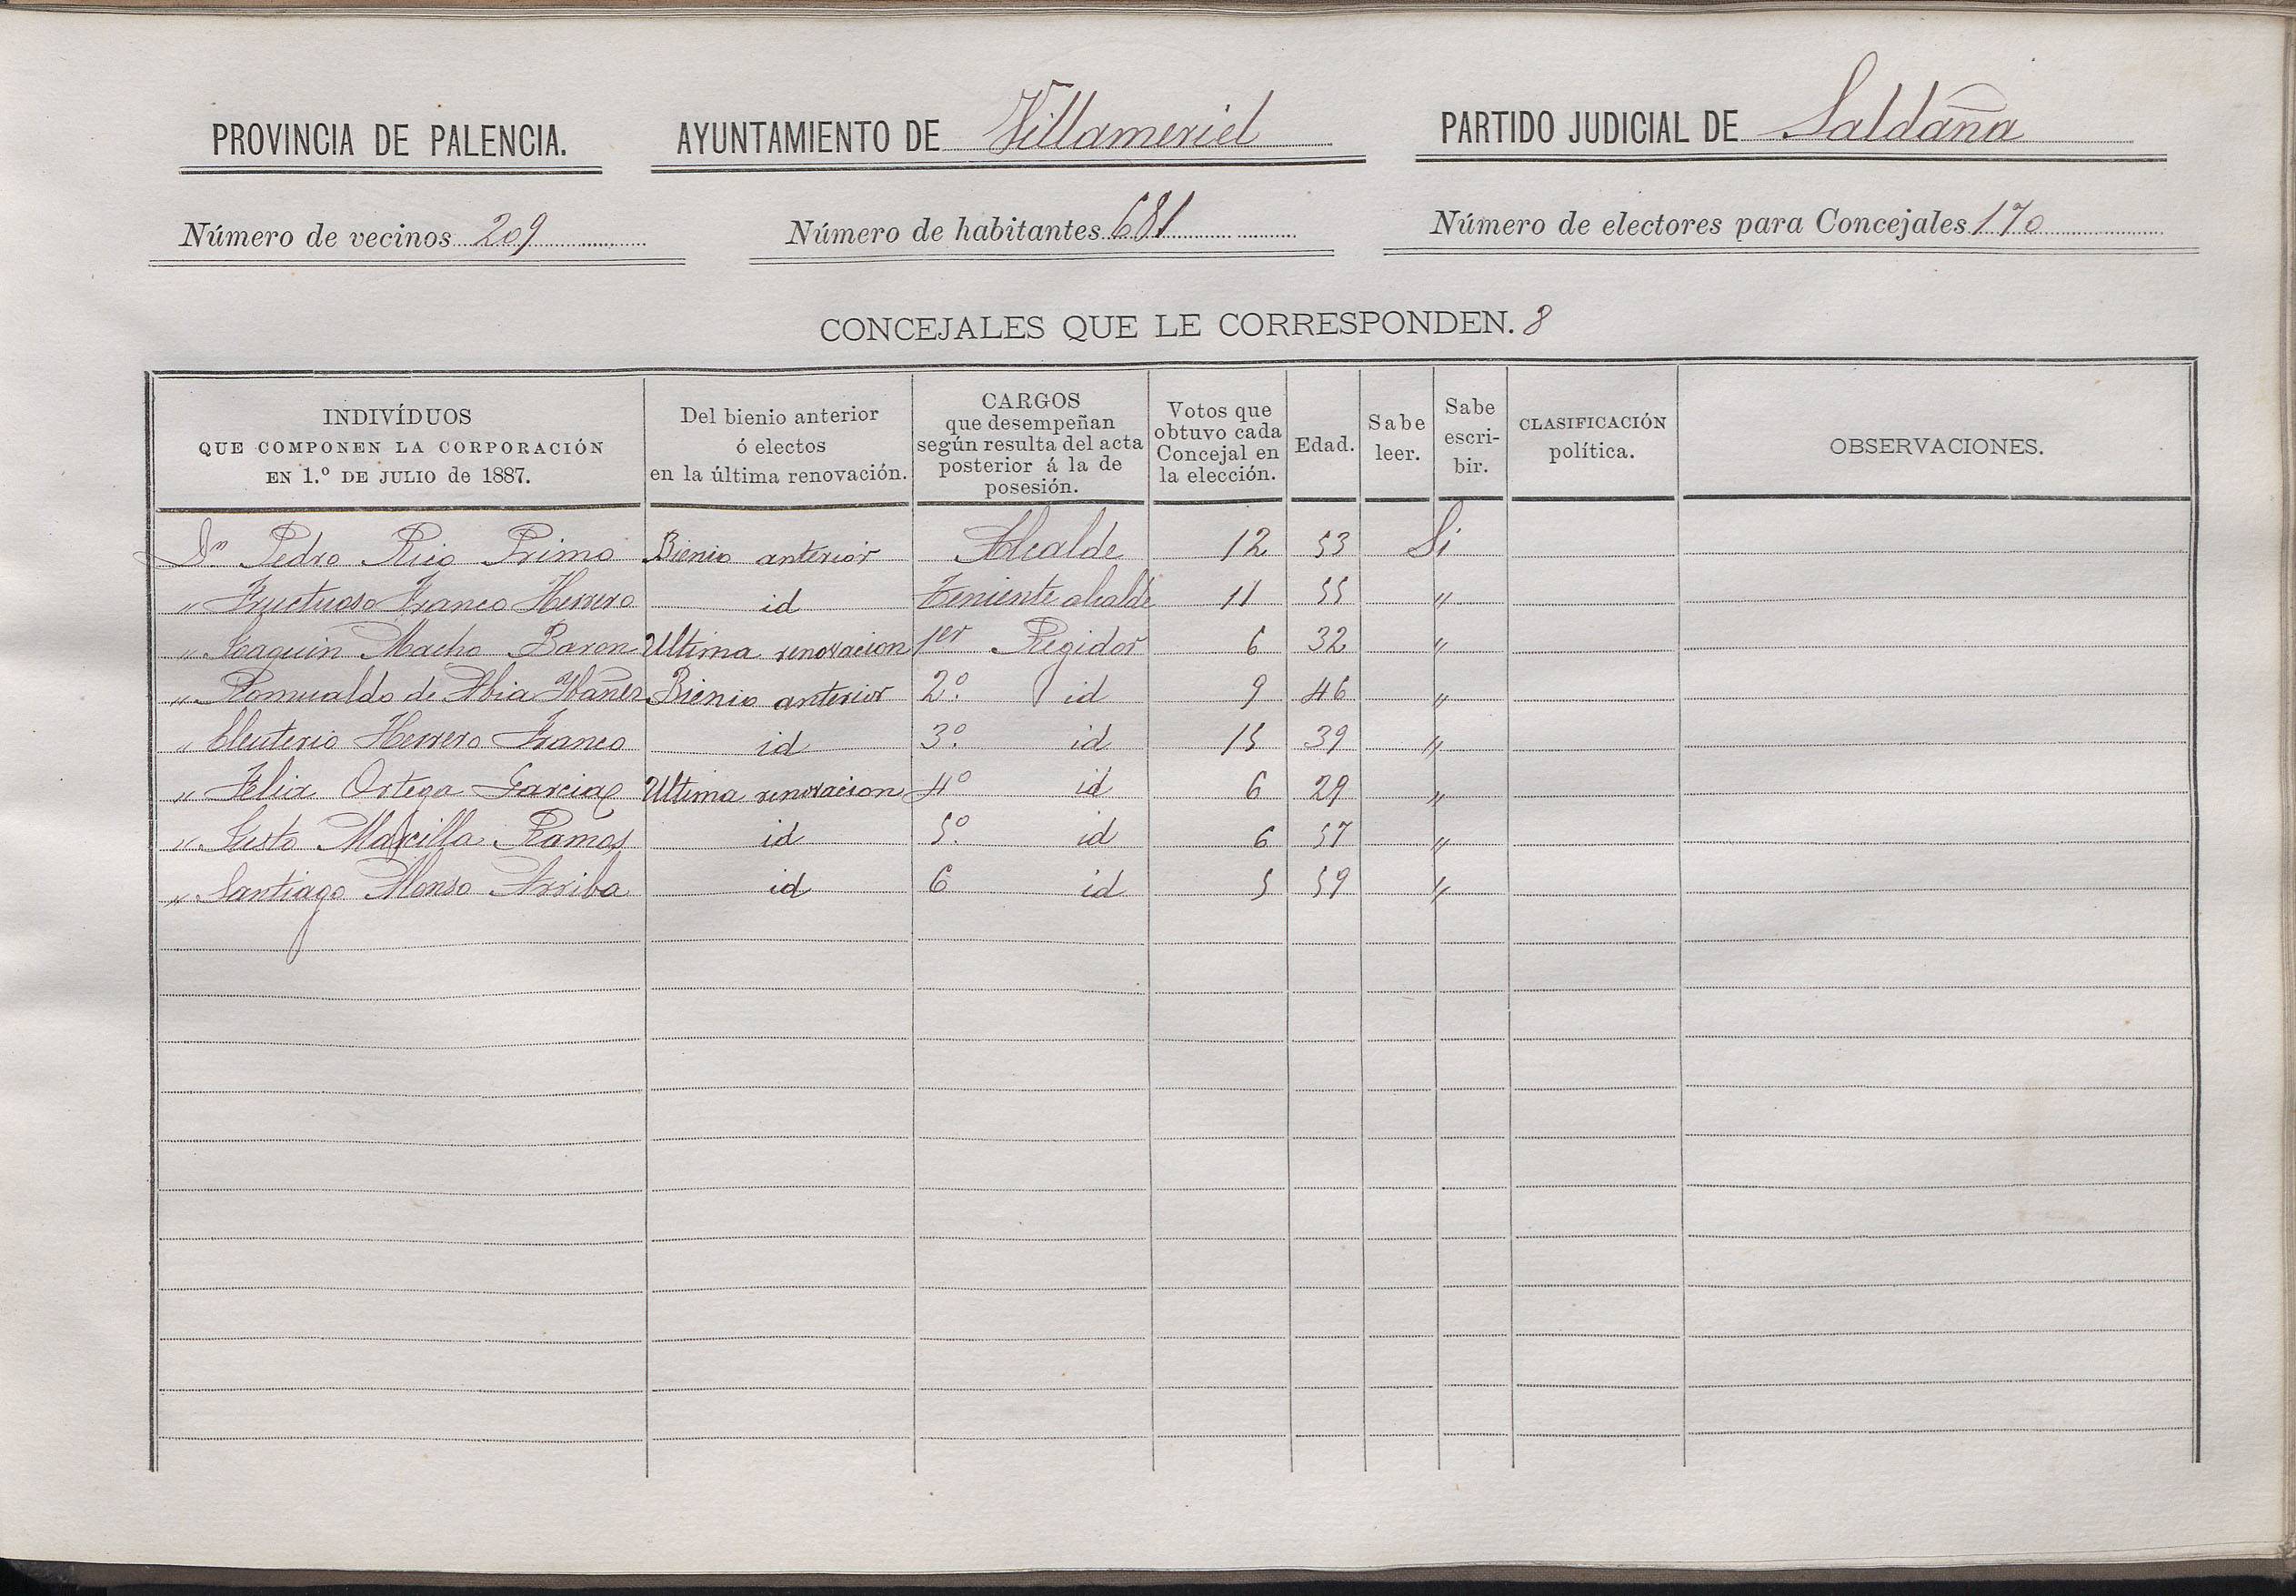 PROVINCIA DE PALENCIA. AYUNTAMIENTO DE Villameriel PARTIDO JUDICIAL DE Saldaña
Número de vecinos 209 Número de habitantes 681 Número de electores para Concejales 170
CONCEJALES QUE LE CORRESPONDEN. 8
INDIVÍDUOS
QUE COMPONEN LA CORPORACIÓN
EN 1.º DE JULIO de 1887.
Del bienio anterior
ó electos
en la última renovación.
CARGOS
que desempeñan
según resulta del acta
posterior á la de
posesión.
Votos que
obtuvo cada
Concejal en
la elección.
Edad.
Sabe
leer.
Sabe
escri-
bir.
CLASIFICACIÓN
política.
OBSERVACIONES.
Dn Pedro Rico Primo Bienio anterior Alcalde 12 53 Si
" Fructuoso Franco Herrero id Teniente alcalde 11 55 "
" Joaquin Macho Baron Ultima renovacion 1er Regidor 6 32 "
" Romualdo de Abia Ybañez Bienio anterior 2º. id 9 46 "
" Eleuterio Herrero Franco id 3º. id 15 39 "
" Felix Ortega Garcia Ultima renovacion 4º id 6 29 "
" Justo Marcilla Ramos id 5º. id 6 57 "
" Santiago Alonso Arriba id 6 id 5 59 "